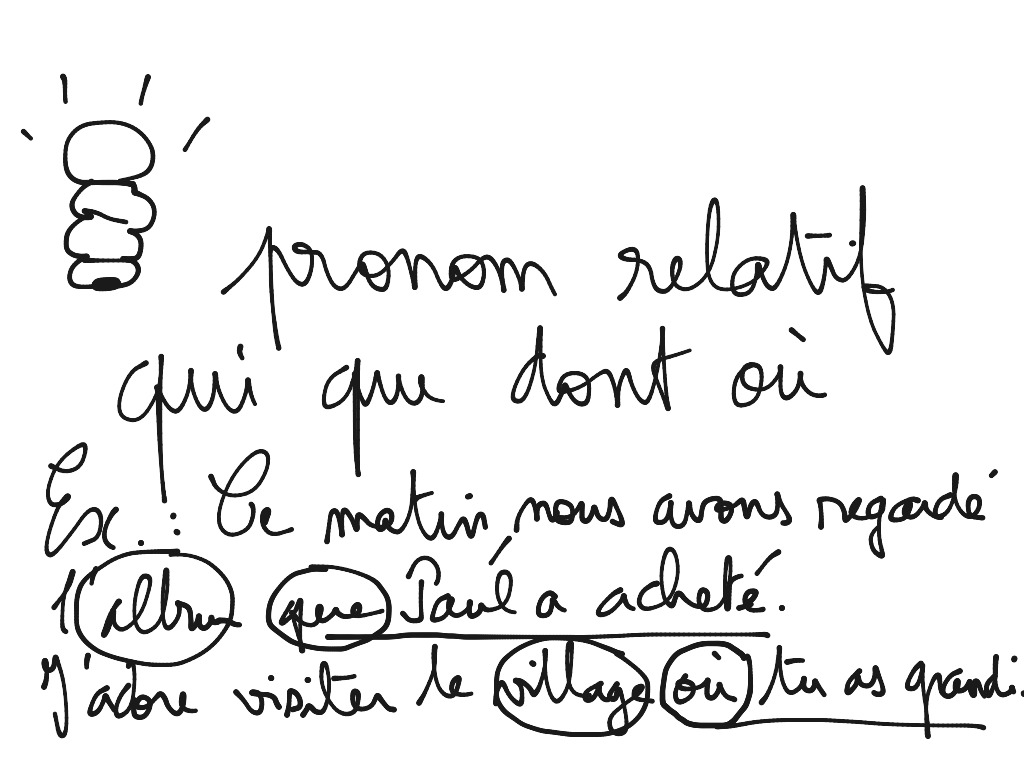 pronom relatif
qui que dont où
Ex. : Ce matin, nous avons regardé
l'album que Paul a acheté.
J'adore visiter le village où tu as grandi.